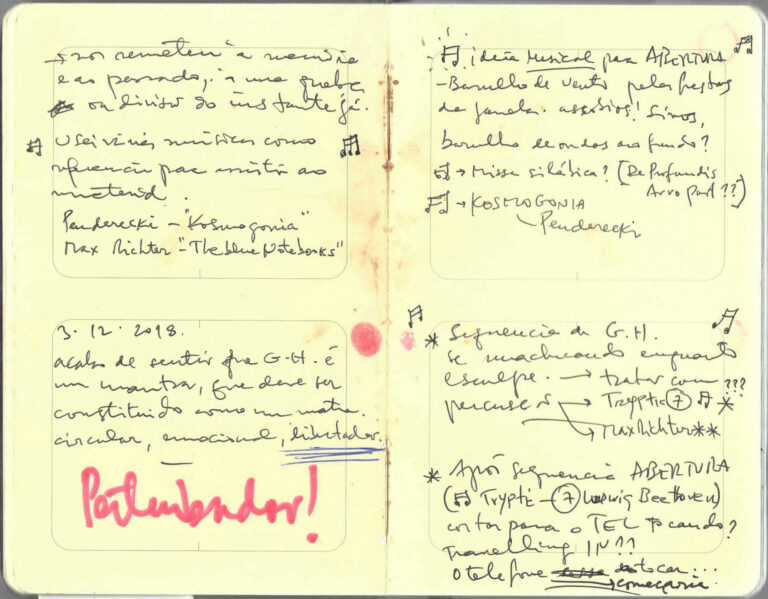 → nos remetem à memória
e ao passado, a uma quebra
ou divisor do instante já.
Usei várias músicas como
referência para assistir ao
material.
Penderecki – "Kosmogonia"
Max Richter – "The blue Notebooks"
3.12.2018.
acabo de sentir que G.H. é
um mantra, que deve ser
constituído como um mantra.
circular, emocional, libertador.
Perturbador!
ideia Musical para ABERTURA
– Barulho de vento pelas frestas
da janela. assobios! Sinos,
barulho de ondas ao fundo?
→ Missa silábica? (De Profundis
Arvo Part??)
→ KOSMOGONIA
– Penderecki
* Sequencia da G.H.
se machucando enquanto
esculpe. → tratar com ???
percussão → Tryptic 7 *
→ Max Richter **
* Após sequencia ABERTURA
(Tryptic – 7 Ludwig Beethoven)
cortar para o TEL tocando?
Travelling IN??
O telefone a tocar...
começaria.